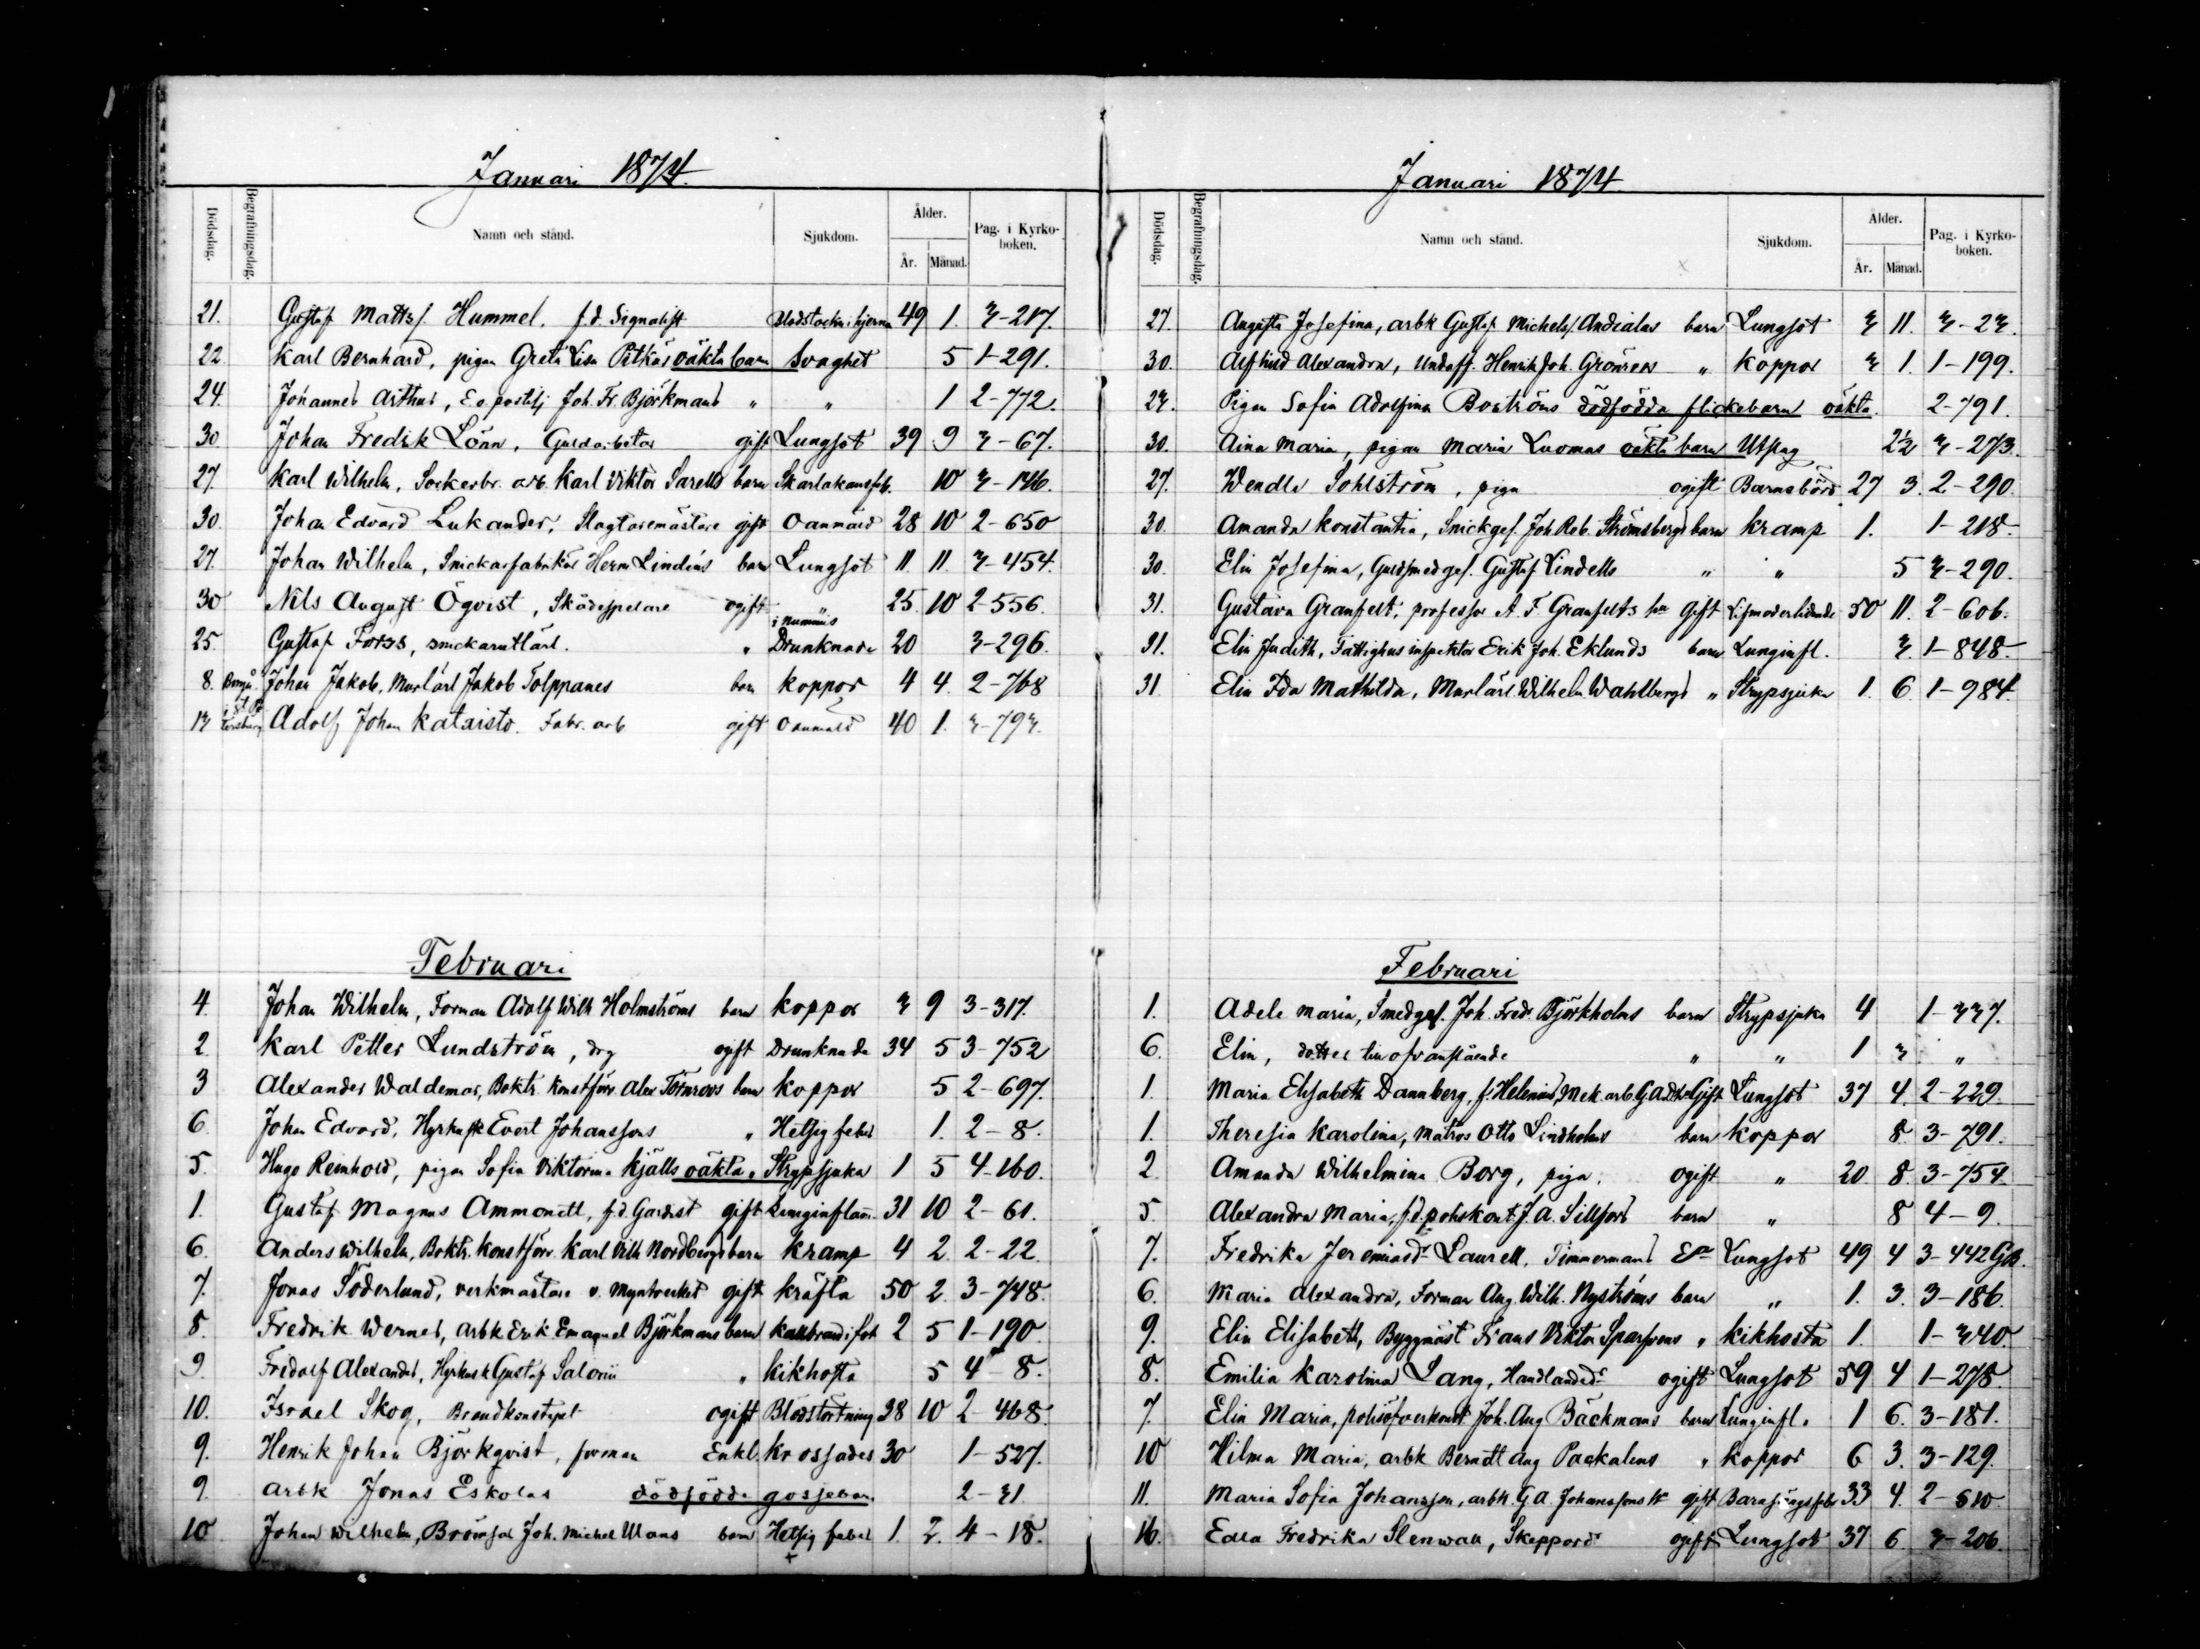 Januari 1874.
Dödsdag. Begrafningsdag. Namn och stånd. Sjukdom. Ålder. År. Månad. Pag. i Kyrkoboken.
21. Gustaf Mattss. Hummel. f.d. Signalist 49 1. 3-217.
22 Karl Bernhard, pigan Greta Lisa Pitkäs oäkta barn Svaghet 5 1-291.
24. Johannes Arthur, E.o. postilj Joh. Fr. Björkmans " " 1 2-772.
30 Johan Fredrik Lönn, Guldarbetar gift Lungsot 39 9 3-67.
27. Karl Wilhelm, Sockerbr. arb. Karl Viktor Sarells barn Skarlakansfeb. 10 3-146.
30. Johan Edvard Lukander, Slagtaremästare gift Oanmäld 28 10 2-650
27. Johan Wilhelm, Snickarfabrikör Herm Lindéns barn Lungsot 11 11. 3-454.
30 Nils August Öqvist, Skådespelare ogift 25. 10 2-556.
25. Gustaf Forss, snickareutlärl. " Drunknade 20 3-296.
8. Johan Jakob, Murlärl Jakob Tolppanes barn koppor 4 4. 2-768
13 Adolf Johan Kataisto. Fabr. arb gift Oanmäld 40 1. 3-793.
Februari
4. Johan Wilhelm, Forman Adolf Wilh Holmströms barn koppor 3 9 3-317.
2. Karl Petter Lundström, drg ogift Drunknade 34 5 3-752
3 Alexander Waldemar, Boktr. konstförv. Alex Törnroos barn koppor 5 2-697.
6. Johan Edvard, Hyrkusk Evert Johanssons " Hetsig feber 1. 2-8.
5. Hugo Reinhold, pigan Sofia Viktorina Kjälls oäkta " Strypsjuka 1 5 4-160.
1. Gustaf Magnus Ammondt, f.d. Gardist gift Lunginflam. 31 10 2-61.
6. Anders Wilhelm, Boktr. konstförv. Karl Vilh Nordbergs barn kramp 4 2. 2-22.
7. Jonas Söderlund, verkmästare v. Myntverket gift kräfta 50 2. 3-748.
8. Fredrik Werner, arbk Erik Emanuel Björkmans barn kallbrand i fot 2 5 1-190.
9. Fridolf Alexander, Hyrkusk Gustaf Salonii " kikhosta 5 4-8.
10. Israel Skog, Brandkonstapel ogift Blodstörtning 38 10 2-468.
9. Henrik Johan Björkqvist, forman Enkl. krossades 30 1-527.
9. arbk Jonas Eskolas dödfödda gossebarn. 2-31
10 Johan Wilhelm, Joh. Michel Mans barn Hetsig feber 1. 2. 4-18.
Januari 1874
Dödsdag. Begrafningsdag. Namn och stånd. Sjukdom. Ålder. År. Månad. Pag. i Kyrkoboken.
27. Augusta Josefina, arbk Gustaf Michelss. Andialas barn Lungsot 3 11. 3-23.
30. Alfhild Alexandra, Undoff. Henrik Joh. Grönroos " koppor 3 1. 1-199.
23. Pigan Sofia Adolfina Boströms dödfödda flickebarn oäkta. 2-791.
30. Aina Maria, pigan Maria Luomas oäkta barn Utslag 2½ 3-273.
27. Wendla Sohlström, piga ogift Barnsbörd 27 3. 2-290.
30. Amanda Konstantia, Snickges. Joh Rob. Strömsbergs barn kramp 1. 1-218-
30. Elin Josefina, Guldsmedges. Gustaf Lindells " " 5 3-290.
31. Gustava Granfelt, professor A. F. Granfelts hu gift Lifmoderlidande 50 11. 2-606.
31. Elin Judith, Fattighus inspektor Erik Joh. Eklunds barn Lunginfl. 3. 1-848-
31 Elin Ida Mathilda, Murlärl Wilhelm Wahlbergs " Strypsjuka 1. 6 1-984.
Februari
1. Adele Maria, Smedges. Joh. Fred. Björkholms barn Strypsjuka 4 1-337.
6. Elin, dotter till ofvanstående " " 1 3 "
1. Maria Elisabeth Dannberg, f. Helenius, Mek. arb. G. A. Ds Gift Lungsot 37 4. 2-229.
1. Theresia Karolina, Matros Otto Lindholms barn koppor 8. 3-791.
2 Amanda Wilhelmina Borg, piga. ogift " 20 8. 3-754.
5. Alexandra Maria, f.d. poliskonst. J. A. Sillfors barn " 8 4-9.
7. Fredrika Jeremiasdr Laurell, Timmermans Ea Lungsot 49 4 3-442 GB.
6. Maria Alexandra, Forman Aug. Wilh. Nyströms barn " 1. 3. 3-186.
9. Elin Elisabeth, Byggmäst Frans Viktor " kikhosta 1. 1-340.
8. Emilia Karolina Lang, Handlandedr ogift Lungsot 59 4 1-278.
7. Elin Maria, Joh. Aug Bäckmans barn Lunginfl. 1 6. 3-181.
10 Hilma Maria, arbk Berndt Aug Packalens " koppor 6 3. 3-129.
11. Maria Sofia Johansson, arbk. G. A. Johanssons h gift Barnsängsfeber 33 4. 2-510.
16. Edla Fredrika Stenwall, Skeppardr ogift Lungsot 37 6. 3-206.